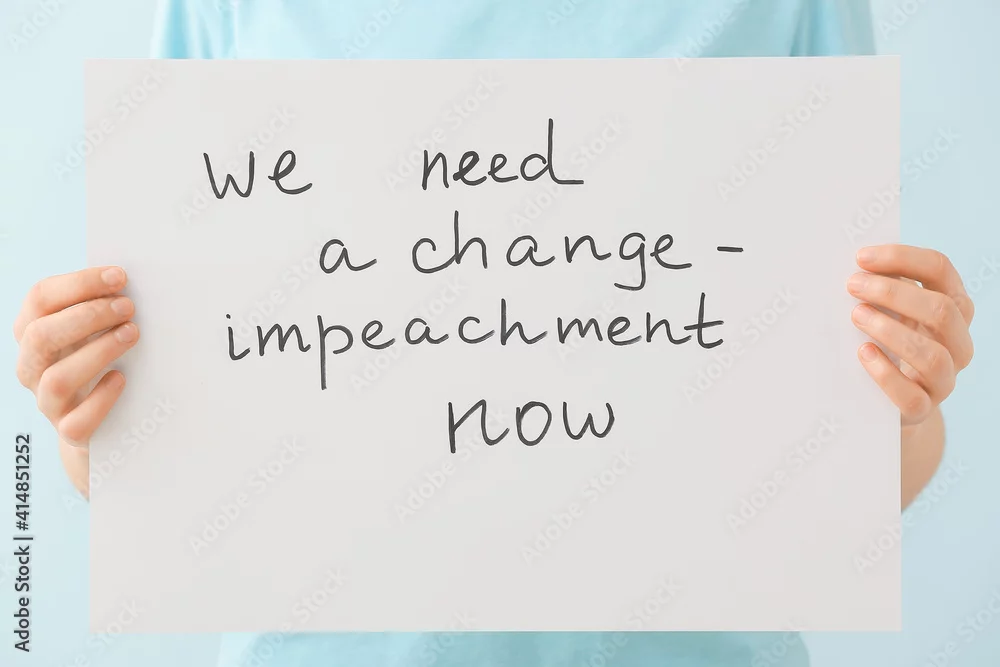 we need
a change -
impeachment
now
Adobe Stock | #414851252
Adobe Stock